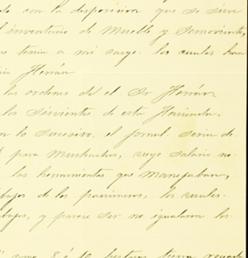 do con la disposicion que se sirve
el inventario de Mueble y Semovientes,
que tenia a mi cargo. los cuales han
Hernán
las ordenes del el Sr Hernán
los sirvientes de esta Hacienda.
en lo sucesivo. el jornal seria de
para Muchachos, cuyo salario no
las herramientas que manejaban,
bajos de los primeros, los cuales
bajos, y parece ser no igualan los